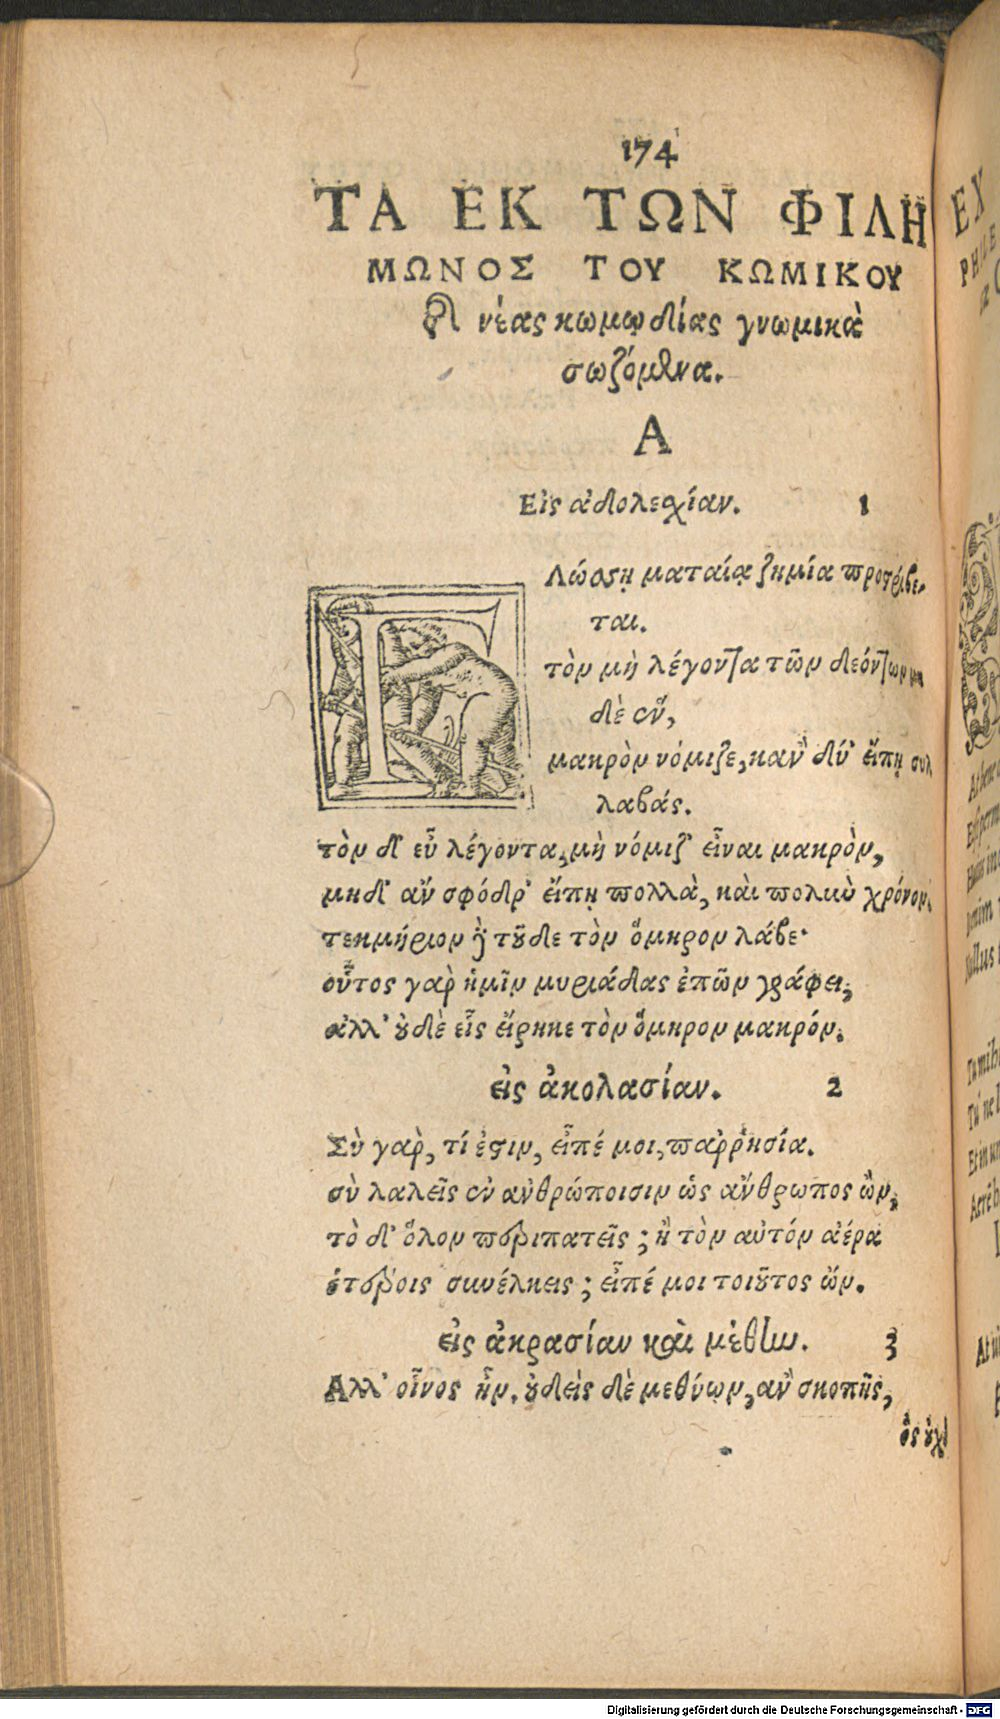 174
ΤΑ ΕΚ ΤΩΝ ΦΙΛΗ
ΜΩΝΟΣ ΤΟΥ ΚΩΜΙΚΟΥ
τῆς νέας κωμῳδίας γνωμικὰ
σωζόμενα.
Α
Εἰς ἀδολεσχίαν. 1
ΓΛώσσῃ ματαίᾳ ζημία προστρίβε-
ται.
τὸν μὴ λέγοντα τῶν δεόντων μη
δὲ ἓν,
μακρὸν νόμιζε, κἂν δύ' εἴπῃ συλ
λαβάς.
τὸν δ' εὖ λέγοντα, μὴ νόμιζ' εἶναι μακρὸν,
μηδ' ἂν σφόδρ' εἴπῃ πολλὰ, καὶ πολὺν χρόνον.
τεκμήριον δὲ τοῦδε τὸν ὅμηρον λάβε·
οὗτος γὰρ ἡμῖν μυριάδας ἐπῶν γράφει,
ἀλλ' οὐδὲ εἷς εἴρηκε τὸν ὅμηρον μακρόν.
εἰς ἀκολασίαν. 2
Σὺ γὰρ, τί ἐστιν, εἶπέ μοι, παῤῥησία.
σὺ λαλεῖς ἐν ἀνθρώποισιν ὡς ἄνθρωπος ὢν,
τὸ δ' ὅλον περιπατεῖς; ἢ τὸν αὐτόν ἀέρα
ἑτέροις συνέλκεις; εἶπέ μοι τοιοῦτος ὤν.
εἰς ἀκρασίαν καὶ μέθην. 3
Ἀλλ' οἶνος ἦν. οὐδεὶς δὲ μεθύων, ἂν σκοπῇς,
ὃς οὐχὶ
EX
PHILE
Digitalisierung gefördert durch die Deutsche Forschungsgemeinschaft - DFG